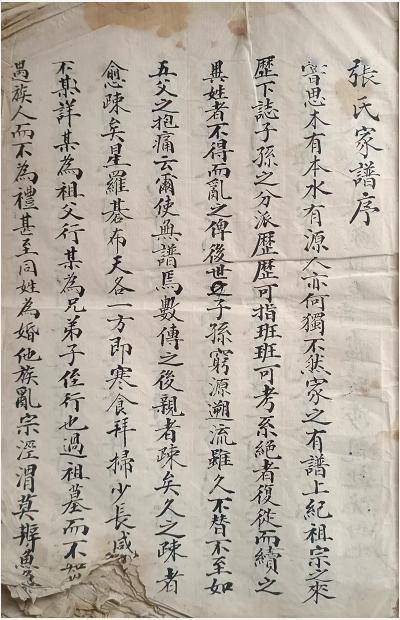 張氏家譜序
嘗思木有本水有源人亦何獨不然家之有譜上紀祖宗之來
歷下誌子孫之分派歷歷可指班班可考系絕者復從而續之
異姓者不得而亂之俾後世之子孫窮源溯流雖久不替不至如
五父之抱痛云爾使無譜焉數傳之後親者疎矣久之疎者
愈疎矣星羅碁布天各一方即寒食拜掃少長咸
不某詳某為祖父行某為兄弟子侄行也過祖墓而不
遇族人而不為禮甚至同姓為婚他族亂宗涇渭莫辨魚